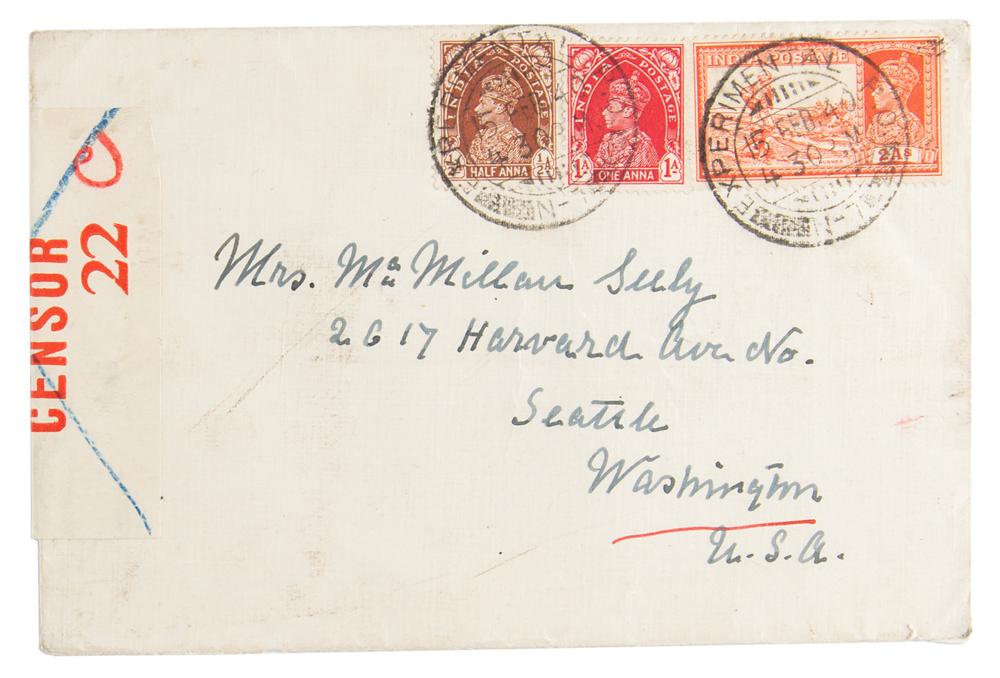 INDIA POSTAGE
½A HALF ANNA ½A
INDIA POSTAGE
1A ONE ANNA 1A
INDIA POSTAGE
2½As
EXPERIMENTAL
15 FEB 4
4 30 PM
CENSOR
22
Mrs. Mc Millan Seely
2617 Harvard Ave No.
Seattle
Washington
U.S.A.